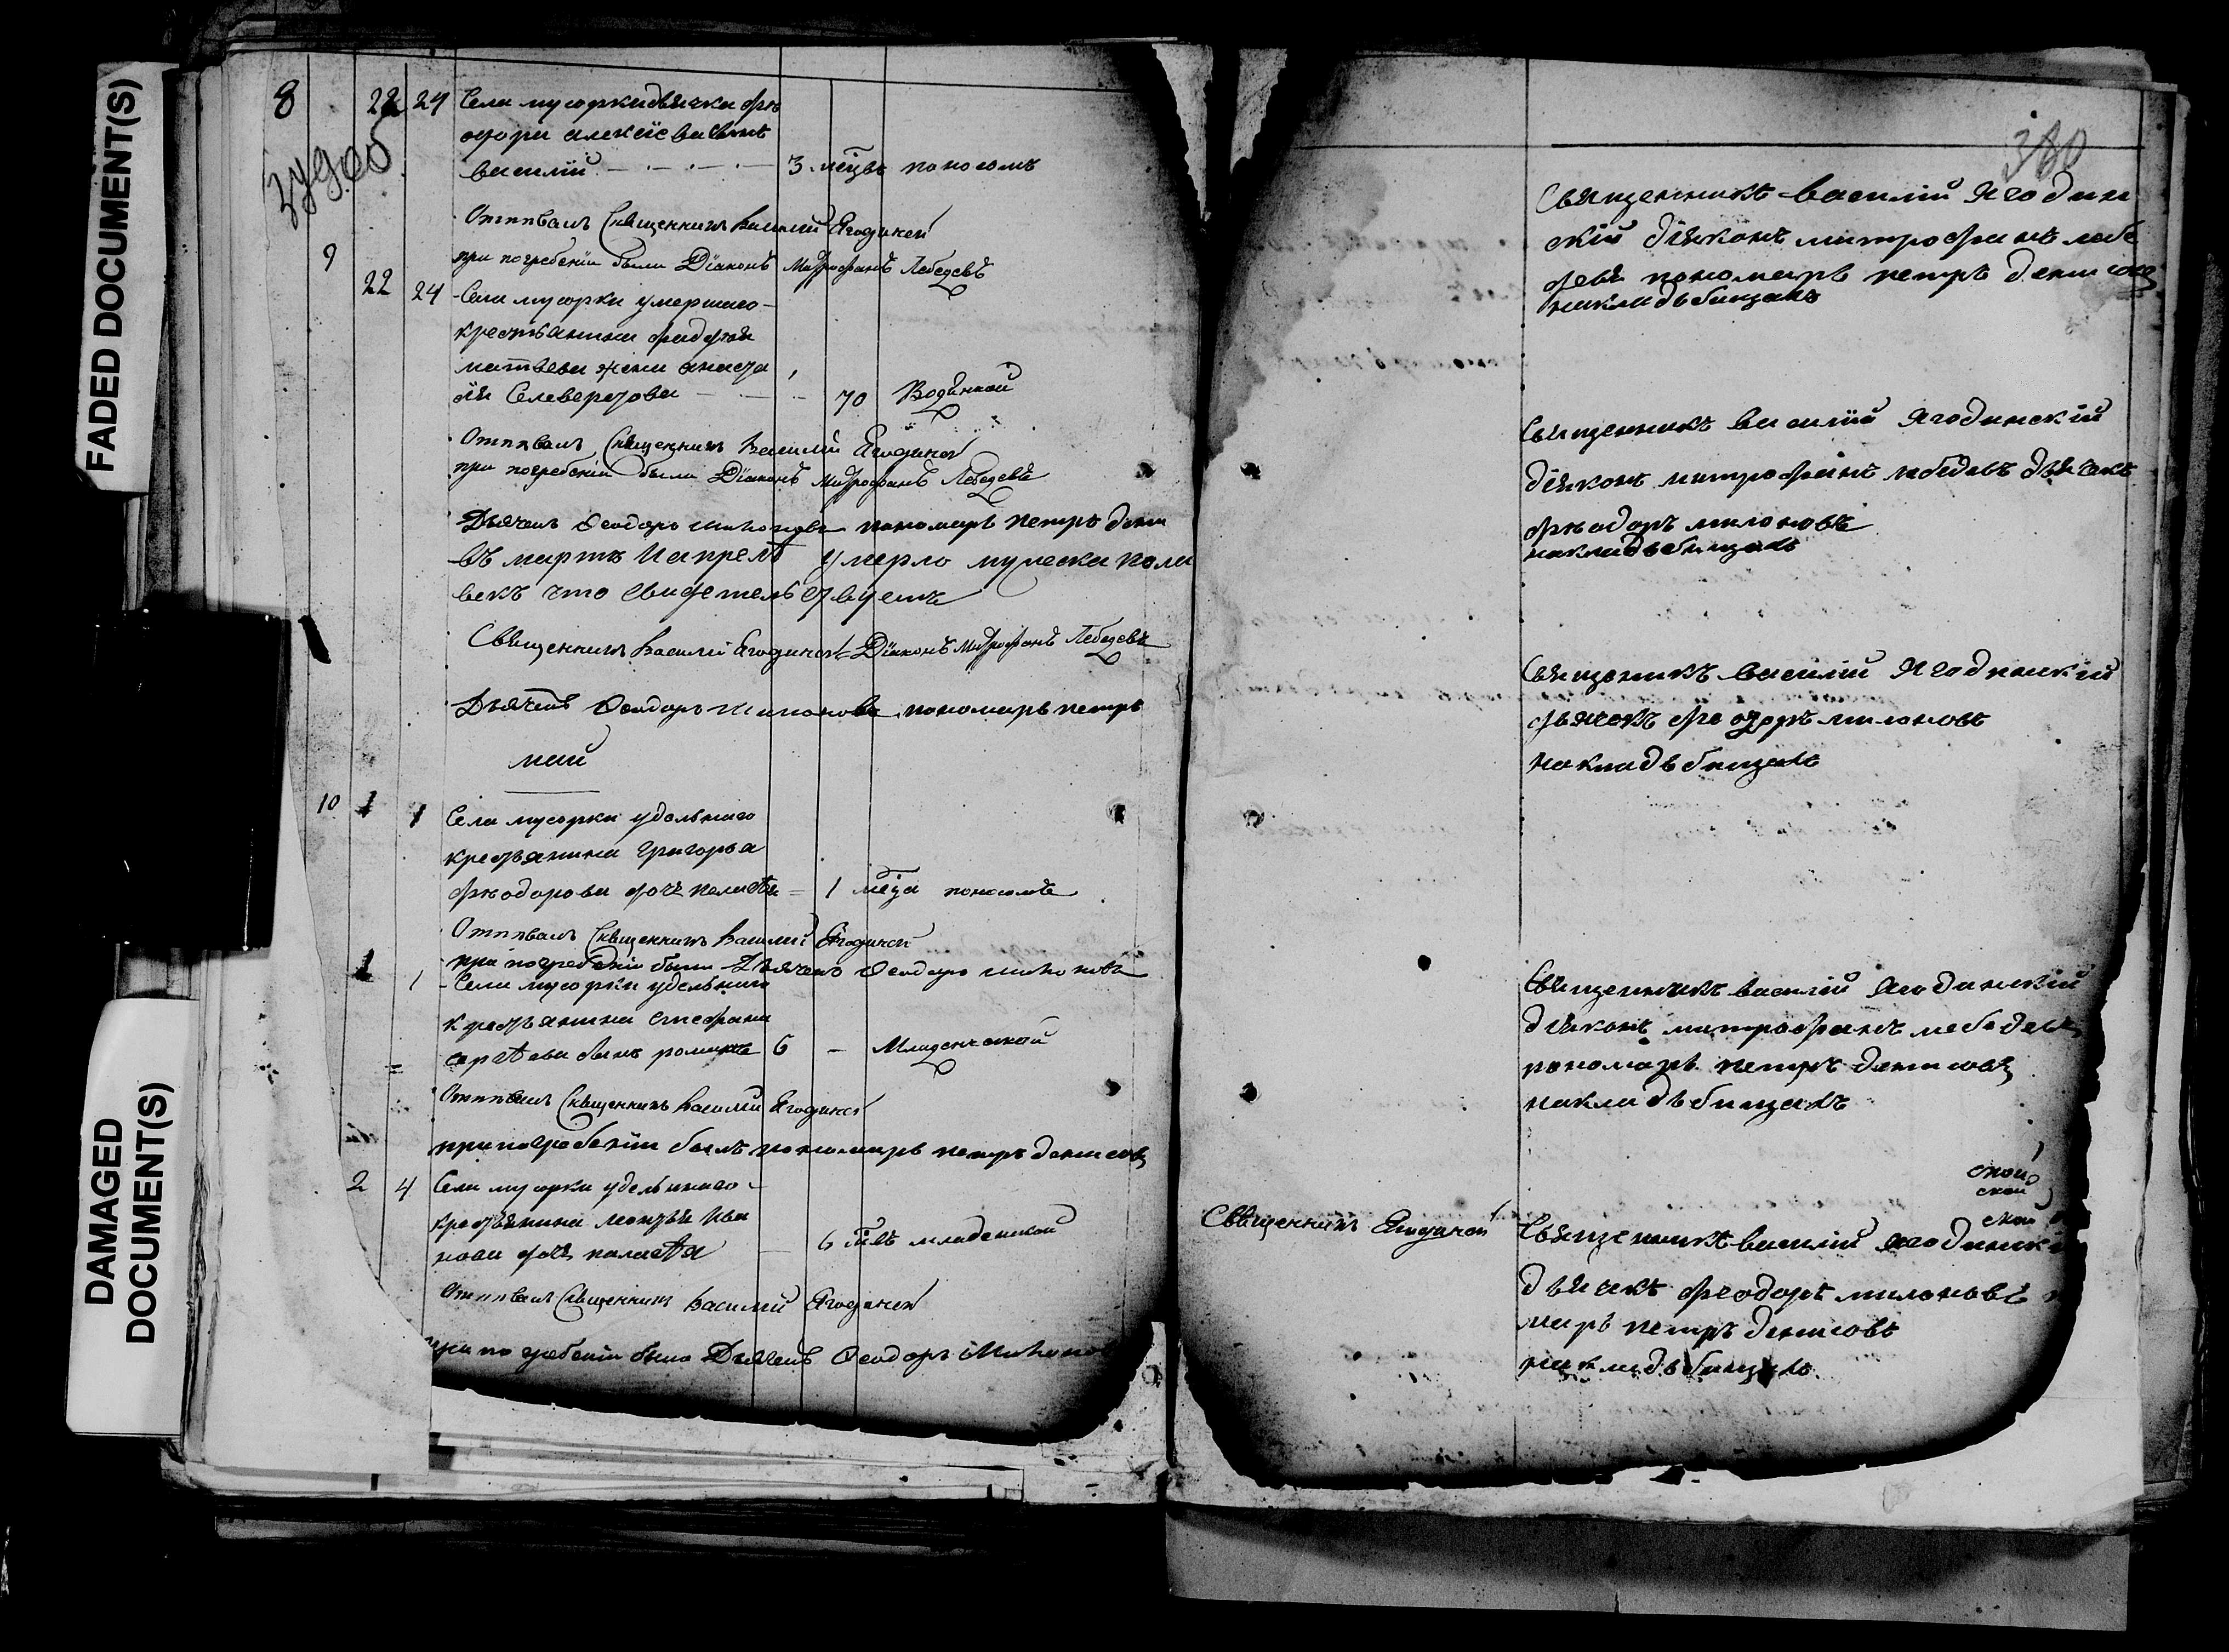 FADED DOCUMENT(S)
DAMAGED
DOCUMENT(S)
379 об
8 22 24 Села мусорки дьячка фео
дора алексѣева сынъ
василiй 3 мѣцвъ поносомъ
Отпѣвалъ Священникъ Василiй Ягодинскiй
при погребенiи были Дiаконъ Митрофанъ Лебедевъ
9 22 24 Села мусорки умершаго
крестьянина фадѣя
матвева жена анаста
сiя Селеверстова 70 Водянкой
Отпѣвалъ Священникъ Василiй Ягодинскiй
при погребенiи были Дiаконъ Митрофанъ Лебедевъ
Дьячекъ Ѳеодоръ Милоновъ пономарь петръ дени
въ мартѣ и апрелѣ умерло мужеска пола
векъ что свидетельствуемъ
Священникъ Василiй Ягодинскiй Дiаконъ Митрофанъ Лебедевъ
Дьячекъ Ѳеодоръ Милоновъ пономарь петръ
май
10 1 1 Села мусорки удельнаго
крестьянина григорья
фіодорова дочь пелагѣя 1 мѣца поносомъ
Отпѣвалъ Священникъ Василiй Ягодинскiй
при погребенiи были Дьячекъ Ѳеодоръ Милоновъ
1 1 Села мусорки удельнаго
крестьянина стефана
сергѣева сынъ романъ 6 Младенческой
Отпѣвалъ Священникъ Василiй Ягодинскiй
при погребенiи былъ пономарь петръ денисовъ
2 4 Села мусорки удельнаго
крестьянина леонтья ива
нова дочь палагѣя 6 младенской
Отпѣвалъ Священникъ Василiй Ягодинскiй
при погребенiи были Дьячекъ Ѳеодоръ Милонов
380
Священникъ василiй Ягодин
скiй дiяконъ митрофанъ лебе
девъ пономарь петръ денисовъ
накладьбищахъ
Священникъ василiй Ягодинскiй
дiяконъ митрофанъ лебедевъ дьячекъ
фіодоръ милоновъ
накладьбищахъ
Священикъ василiй Ягодинскiй
дьячекъ феодоръ милоновъ
накладьбищахъ
Священникъ василiй Ягодинскiй
дiяконъ митрофанъ лебедевъ
пономарь петръ денисовъ
накладьбищахъ
ской
ской
ской
Священникъ Ягодинскiй
Священникъ василiй ягодински
дьячекъ феодоръ милоновъ
марь петръ денисовъ
накладьбищахъ